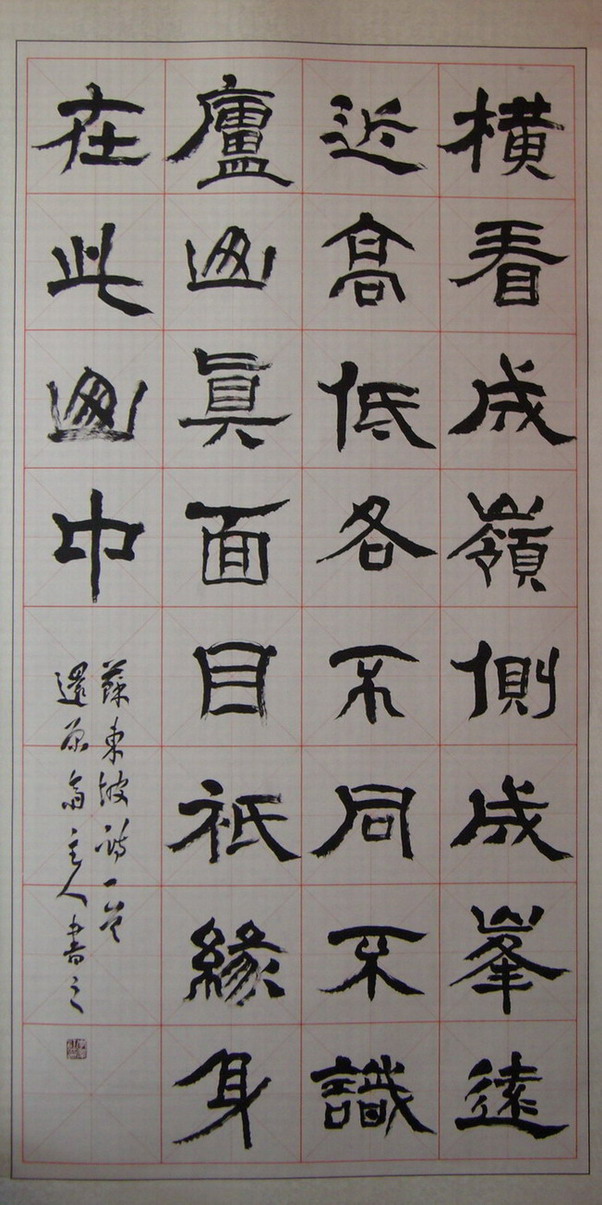 橫看成嶺側成峯遠
近高低各不同不識
廬山真面目祇緣身
在此山中
蘇東坡詩一首
還原齋主人書之